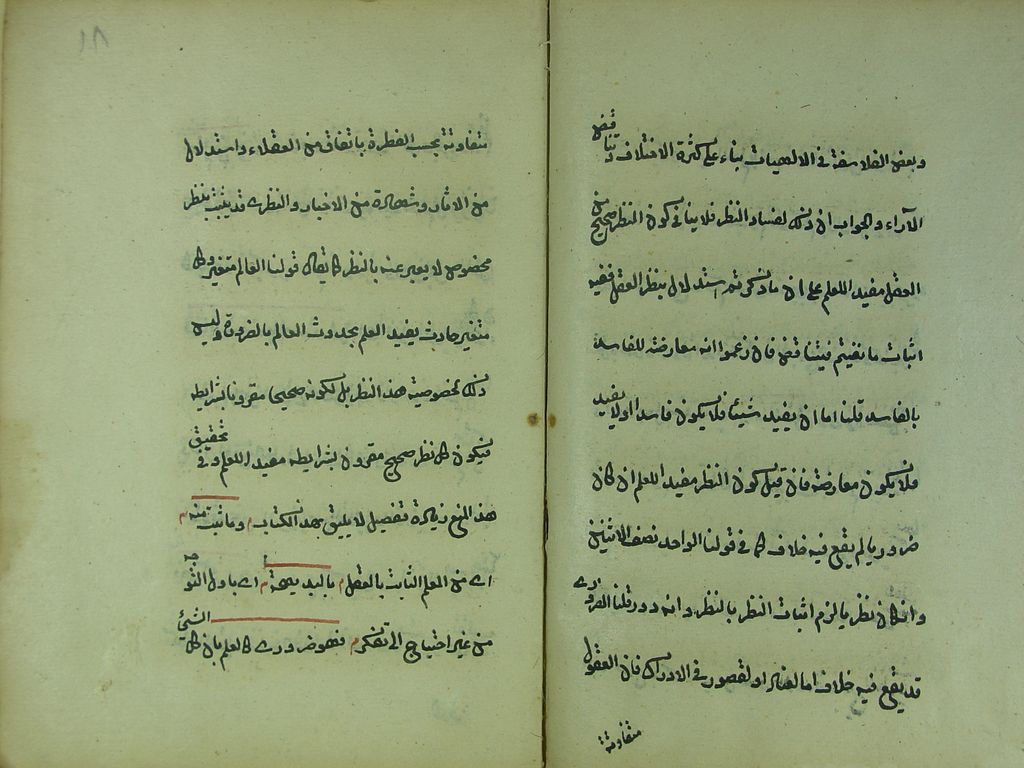 وبعض الفلاسفة في الالهيات بناء على كثرة الاختلاف وتناقض
الآراء والجواب ان ذلك لفساد النظر فلا ينافي كون النظر صحيح من
العقل مفيدا للعلم على ان ما ذكرتم استدلال بنظر العقل ففيه
اثبات ما نفيتم فيتناقض فان زعموا انه معارضة للفاسد
بالفاسد قلنا اما ان يفيد شيئا فلا يكون فاسدا اولا يفيد
فلا يكون معارضة فان قيل كون النظر مفيدا للعلم ان كان
ضروريا لم يقع فيه خلاف كما في قولنا الواحد نصف الاثنين
وانكان نظريا لزم اثبات النظر بالنظر وانه دور قلنا الضروري
قد يقع فيه خلاف اما لعناد او لقصور في الادراك فان العقول
متفاوتة
١٨
متفاوتة بحسب الفطرة باتفاق من العقلاء واستدلال
من الاثار وشهادة من الاخبار والنظري قد يثبت بنظر
مخصوص لا يعبر عنه بالنظر كما يقال قولنا العالم متغير وكل
متغير حادث يفيد العلم بحدوث العالم بالضرورة وليس
ذلك لخصوصية هذا النظر بل لكونه صحيحا مقرونا بشرايطه
فيكون كل نظر صحيح مقرون بشرايطه مفيدا للعلم وفي تحقيق
هذا المنع زيادة تفصيل لا يليق بهذا الكتاب وما ثبت منه
اي من العلم الثابت بالعقل بالبديهة اي باول التوجه
من غير احتياج الى تفكر فهو ضروري كالعلم بان كل الشئ